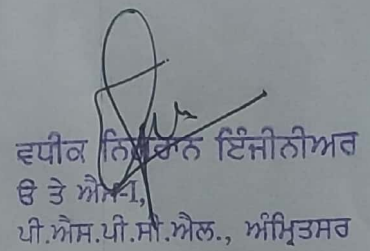 ਵਧੀਕ ਨਿਗਰਾਨ ਇੰਜੀਨੀਅਰ
ੳ ਤੇ ਐਮ-I,
ਪੀ.ਐਸ.ਪੀ.ਸੀ.ਐਲ., ਅੰਮ੍ਰਿਤਸਰ